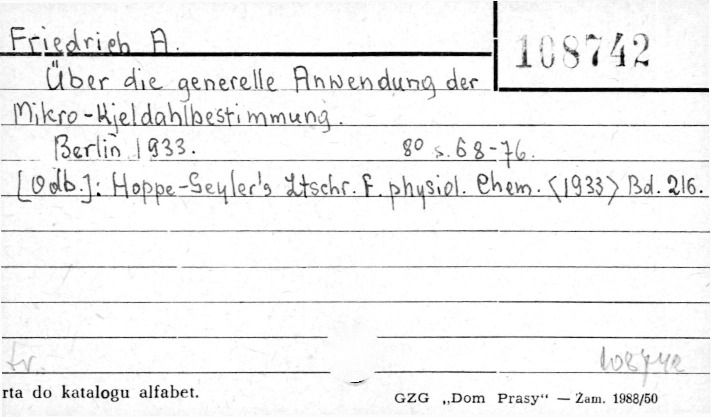 Friedrich A.
108742
Über die generelle Anwendung der
Mikro-Kjeldahlbestimmung.
Berlin 1933. 8° s. 68-76.
[Odb.]: Hoppe-Seyler's Ztschr. f. physiol. Chem. <1933> Bd. 216.
tr. 108742
rta do katalogu alfabet.
GZG „Dom Prasy" — Zam. 1988/50